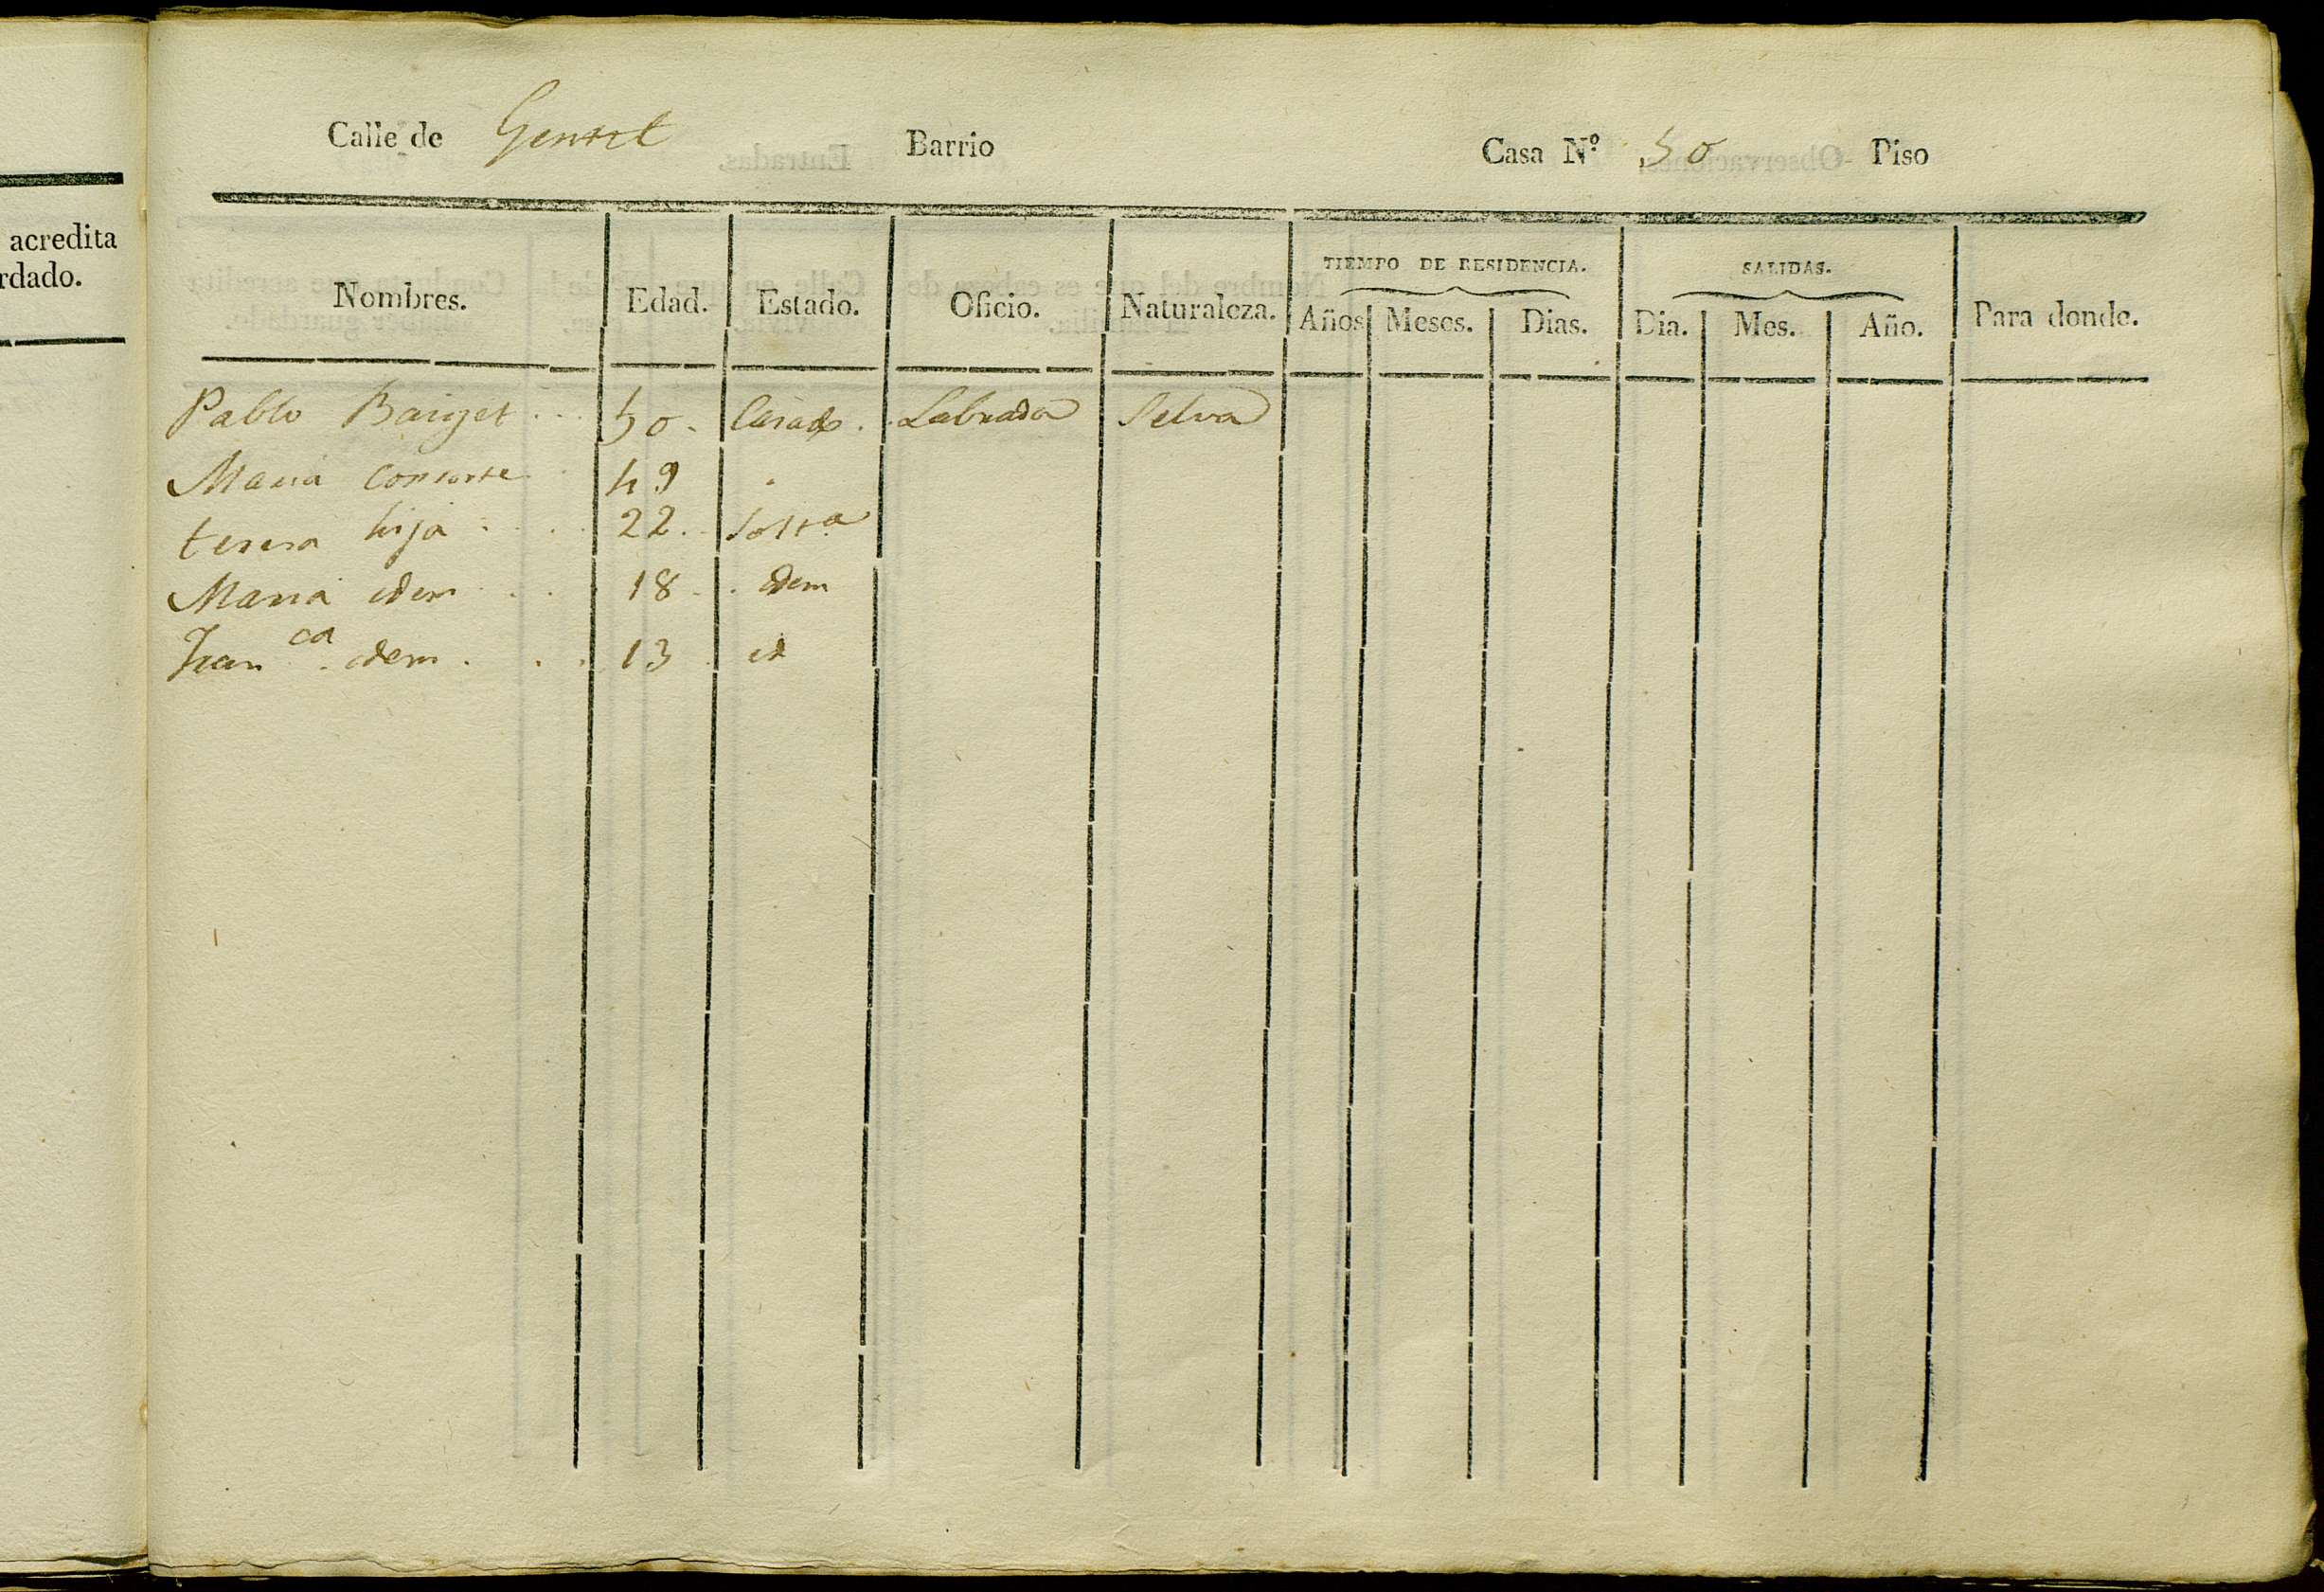 acredita
rdado.
Calle de Gentil Barrio Casa Nº 50 Piso
TIEMPO DE RESIDENCIA. SALIDAS.
Nombres. Edad. Estado. Oficio. Naturaleza. Años Meses. Dias. Dia. Mes. Año. Para donde.
Pablo Baiget 50 Casado Labrador Selva
Maria consorte 49
teresa hija 22 Solta
Maria idem 18 idem
Franca idem 13 id